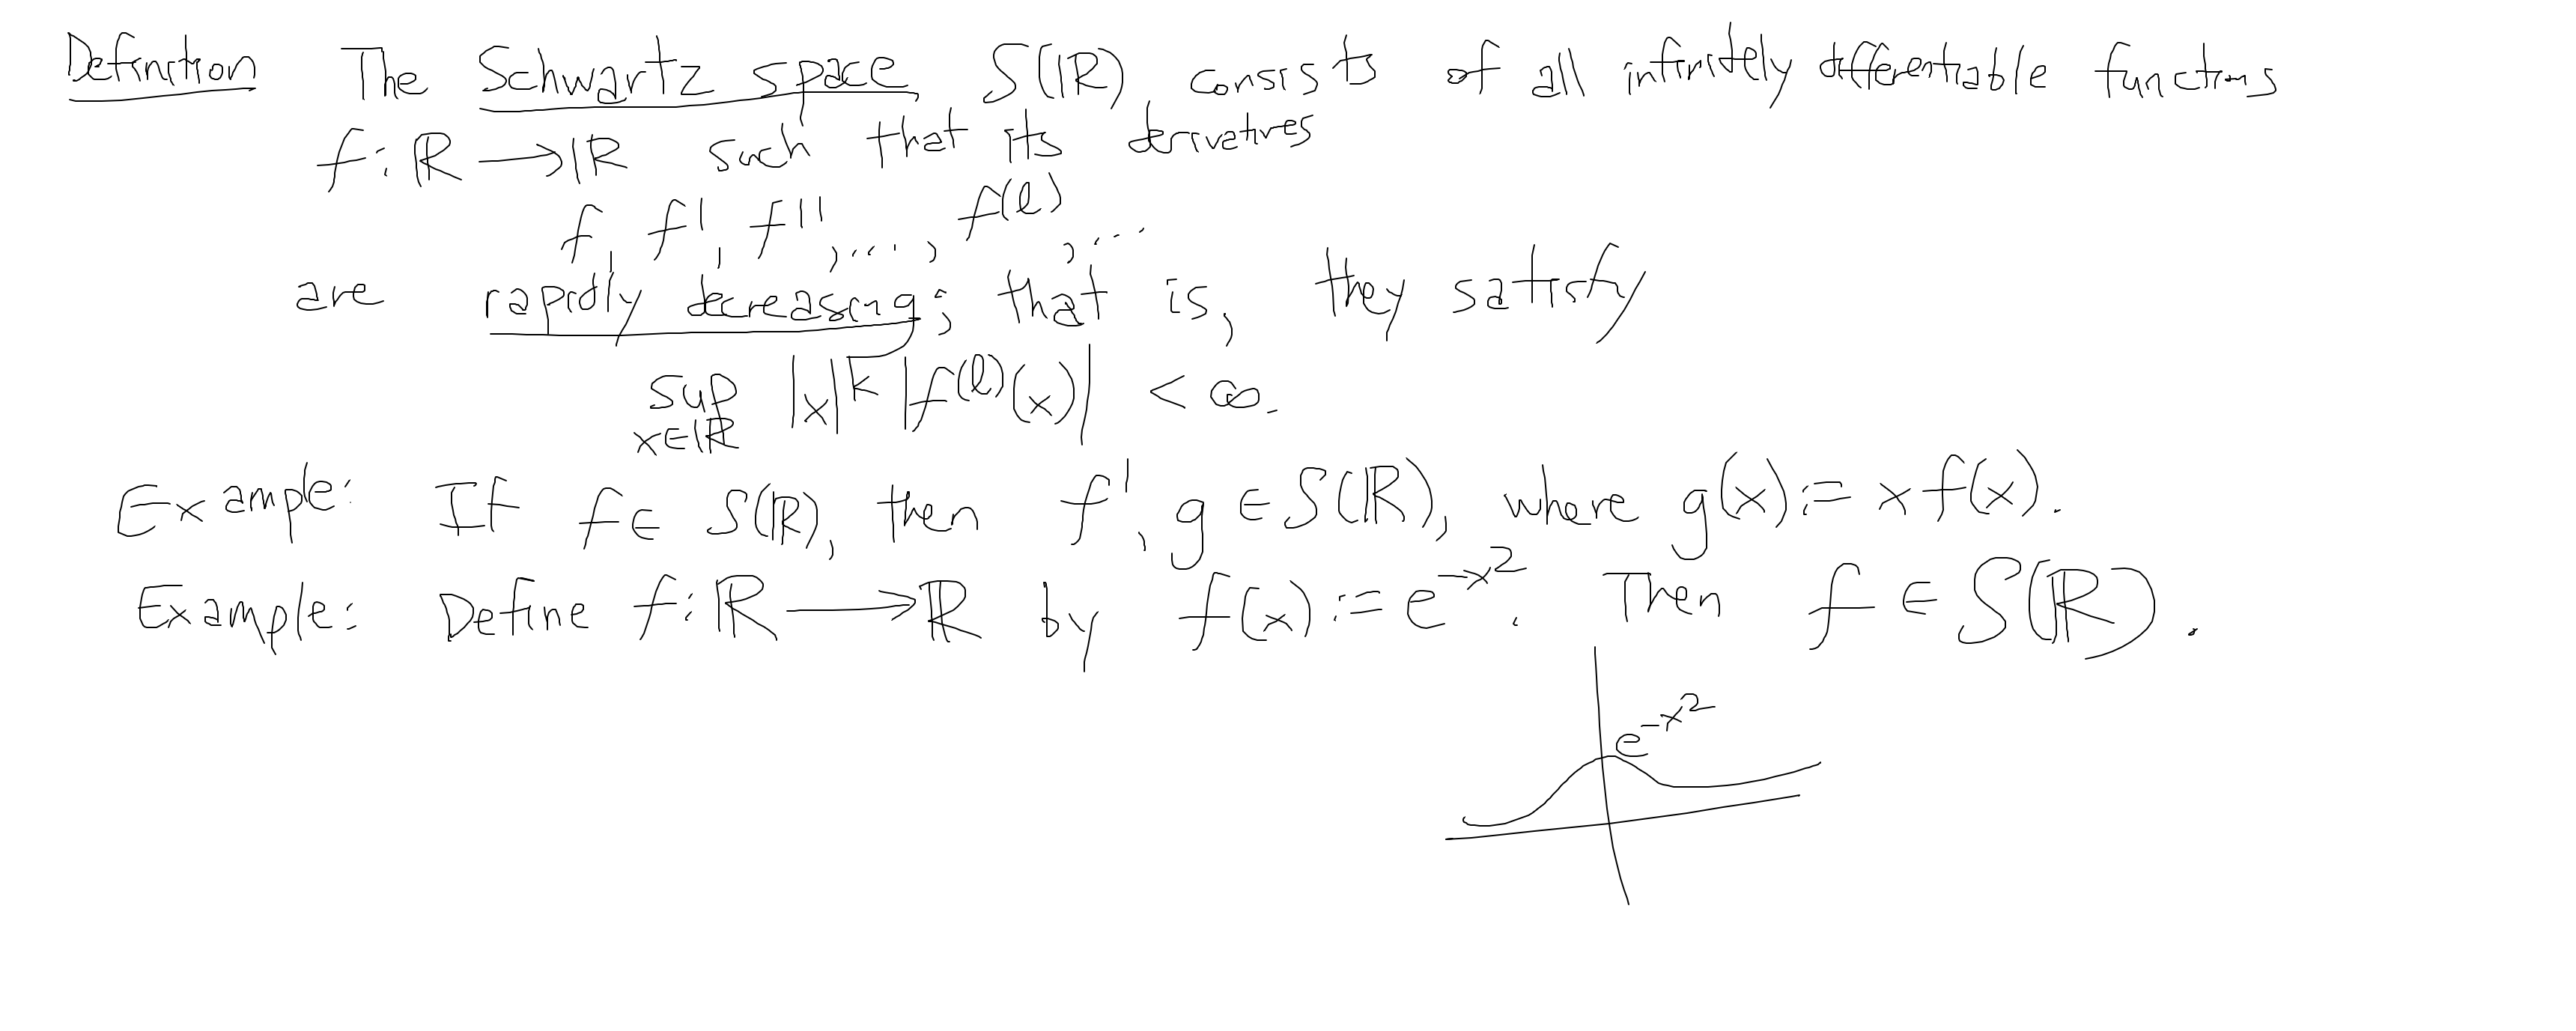 Definition The Schwartz space S(ℝ) consists of all infinitely differentiable functions
f: ℝ → ℝ such that its derivatives
f, f', f'', ..., f^(ℓ), ...
are rapidly decreasing; that is, they satisfy
sup_{x∈ℝ} |x|^k |f^(ℓ)(x)| < ∞.
Example: If f ∈ S(ℝ), then f', g ∈ S(ℝ), where g(x) := x f(x).
Example: Define f: ℝ → ℝ by f(x) := e^{-x^2}. Then f ∈ S(ℝ).
e^{-x^2}